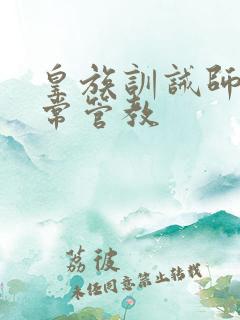 皇族訓誡師
常管教
荔彼
未经同意禁止转载